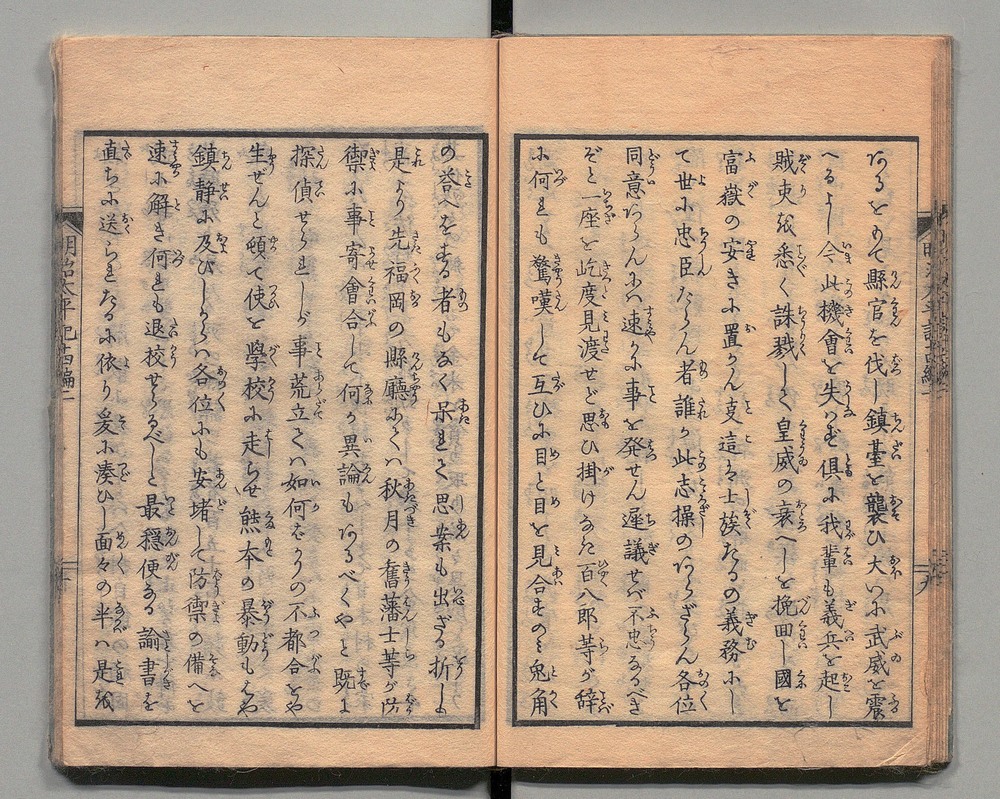 あるをもて縣官を伐し鎮䑓を襲ひ大いに武威を震
へるよし今此機會を失はず俱に我輩も義兵を起し
賊吏を悉く誅戮しく皇威の衰へしを挽囬し國を
富嶽の安きに置かん事這は士族たるの義務にし
て世に忠臣たらん者誰か此志操のあらざらん各位
同意あらんには速かに事を発せん遅議せば不忠なるべき
ぞと一座を屹度見渡せど思ひ掛けなき百八郎等が辞
に何れも驚嘆して互ひに目と目を見合すのミ兎角
の答へをする者もなく呆れて思案も出ざる折しも
是より先福岡の縣廳にては秋月の舊藩士等が防
禦に事寄會合して何か異論もあるべくやと既に
探偵せられしが事荒立ては如何ばかりの不都合をや
生ぜんと頓て使を學校に走らせ熊本の暴動もはや
鎮静に及びしからは各位にも安堵して防禦の備へを
速に解き何れも退校せらるべしと最穏便なる諭書を
直ちに送られたるに依り爰に湊ひし面々の半は是を
明治太平記十四編二